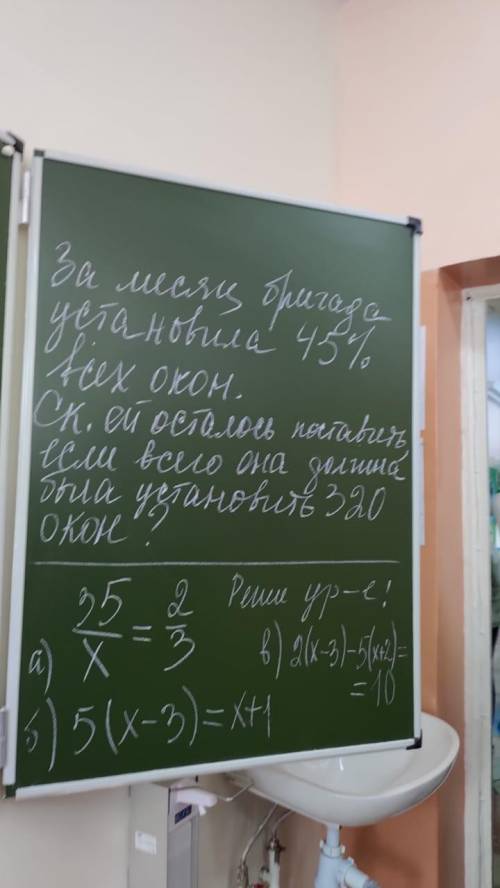 За месяц бригада
установила 45%
всех окон.
Ск. ей осталось поставить,
если всего она должна
была установить 320
окон?
Реши ур-е!
а) 35/x = 2/3
в) 2(x-3)-5(x+2)=
=10
б) 5(x-3)=x+1